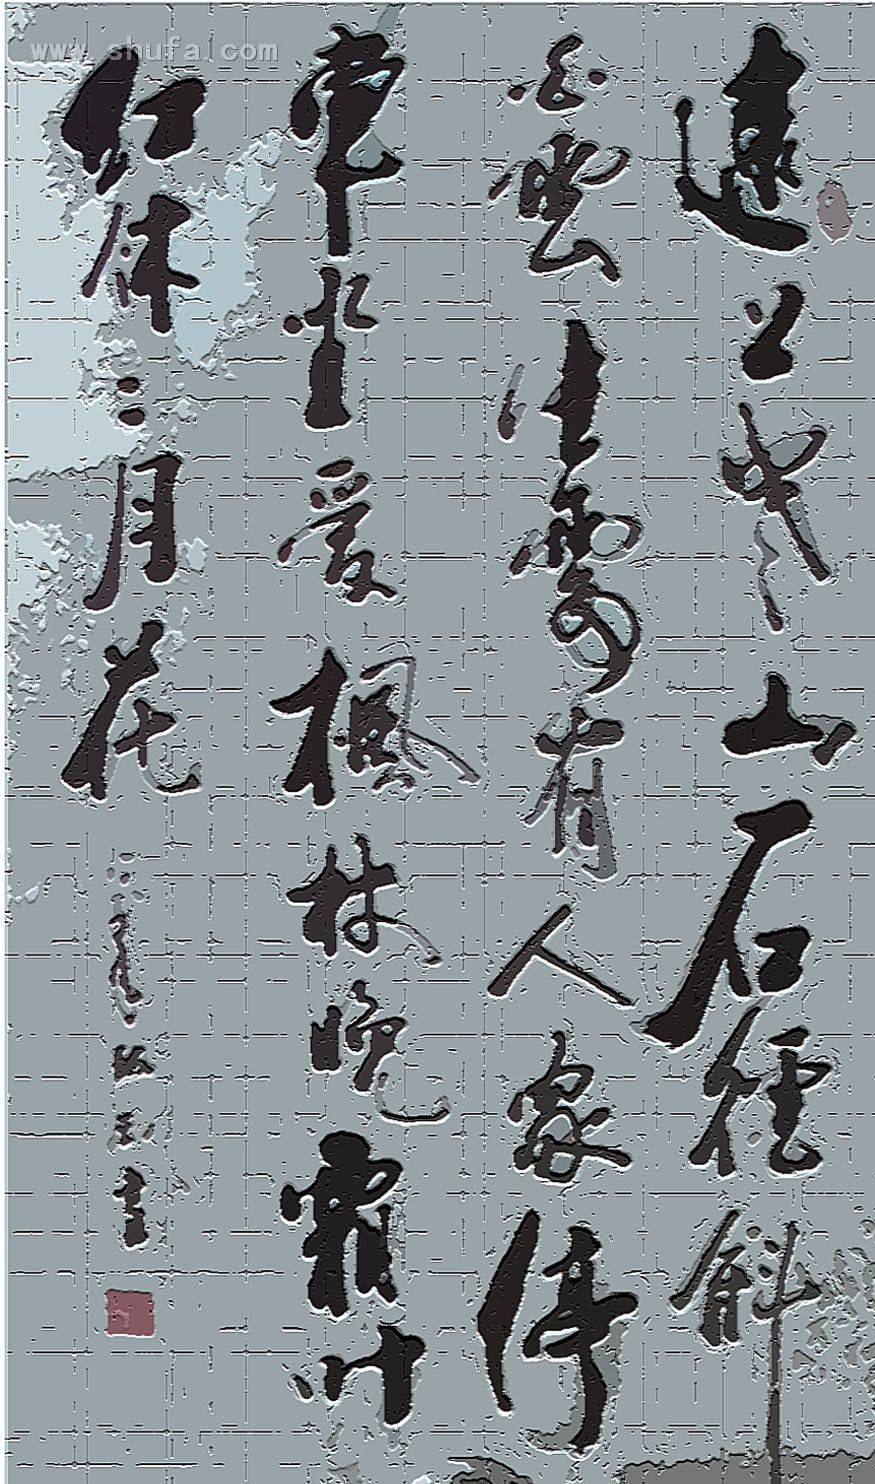 遠上寒山石徑斜
白雲生處有人家停
車坐愛楓林晚霜叶
紅於二月花
書
www.shufa.com